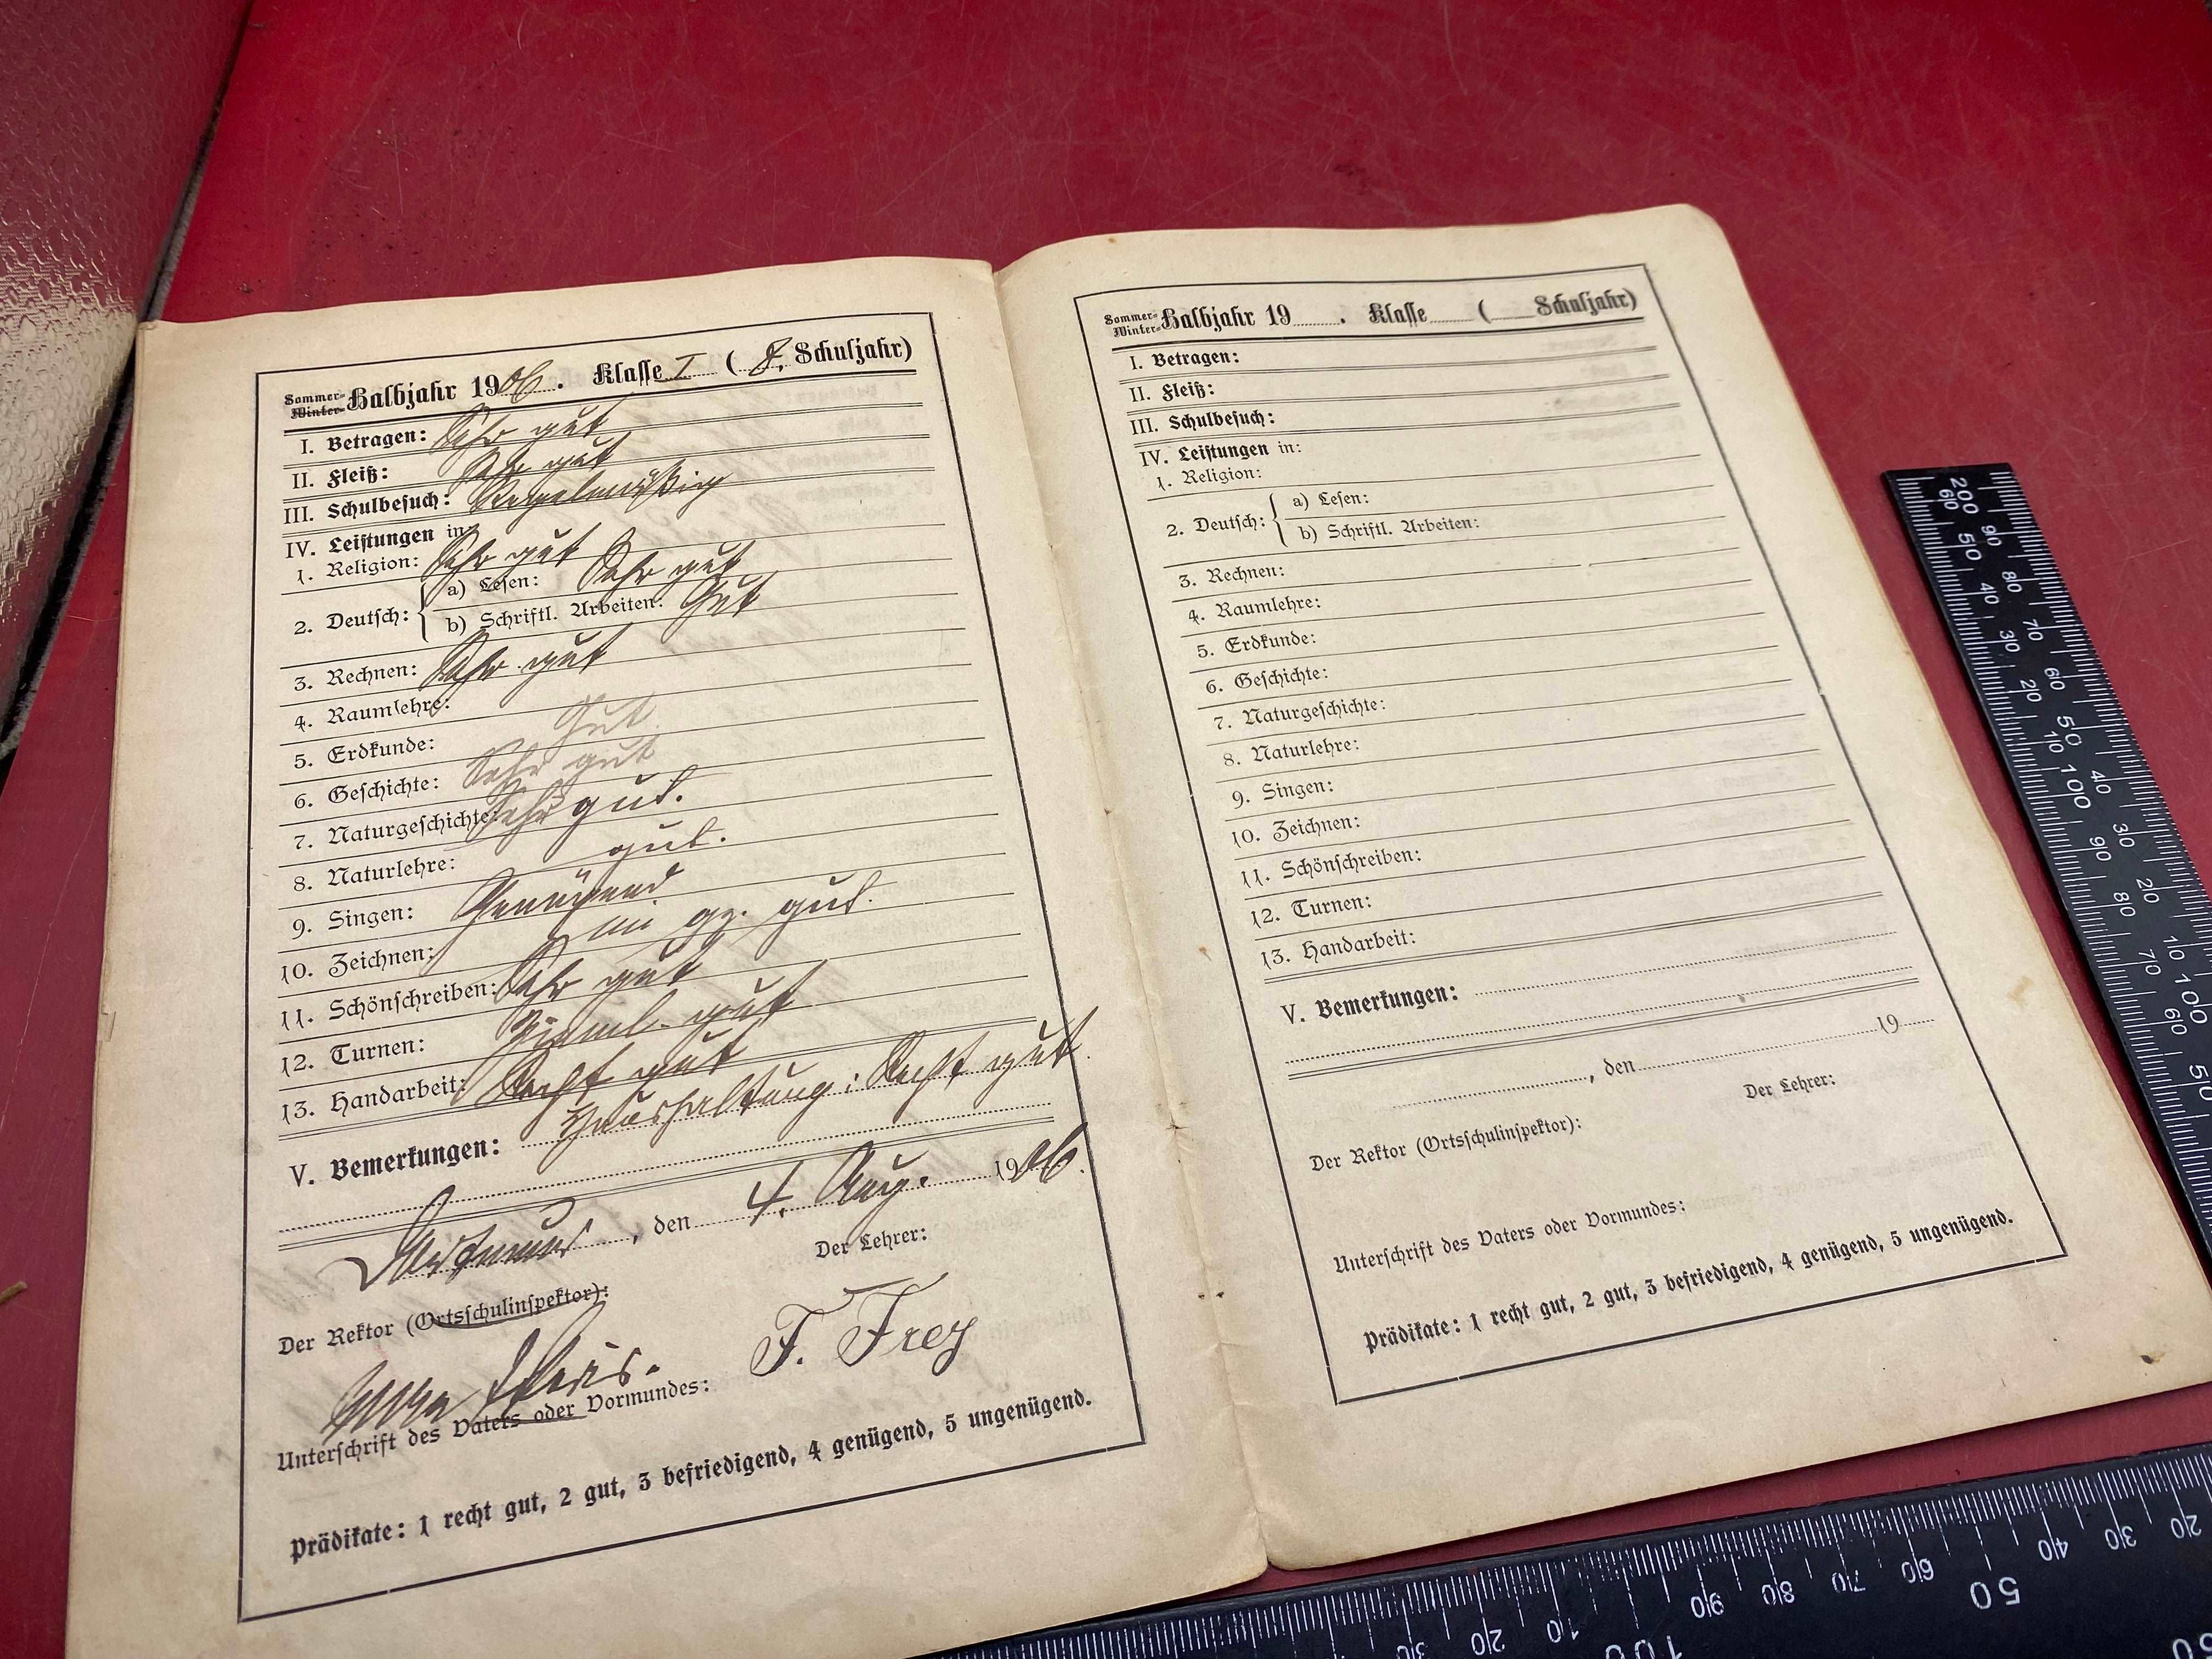 Sommer-
Winter-Halbjahr 1906. Klasse I (8. Schuljahr)
I. Betragen: Sehr gut
II. Fleiß: Sehr gut
III. Schulbesuch: Regelmäßig
IV. Leistungen in
1. Religion: Sehr gut
2. Deutsch: a) Lesen: Sehr gut
b) Schriftl. Arbeiten: Gut
3. Rechnen: Sehr gut
4. Raumlehre:
5. Erdkunde: Gut
6. Geschichte: Sehr gut
7. Naturgeschichte: Sehr gut.
8. Naturlehre: gut.
9. Singen: Genügend
10. Zeichnen: im gz. gut.
11. Schönschreiben: Sehr gut
12. Turnen: Zieml. gut
13. Handarbeit: Recht gut
V. Bemerkungen: Haushaltung: Recht gut.
Dortmund, den 4. Aug. 1906.
Der Lehrer:
Der Rektor (Ortsschulinspektor):
F. Frey
Unterschrift des Vaters oder Vormundes:
Prädikate: 1 recht gut, 2 gut, 3 befriedigend, 4 genügend, 5 ungenügend.
Sommer-
Winter-Halbjahr 19 . Klasse ( Schuljahr)
I. Betragen:
II. Fleiß:
III. Schulbesuch:
IV. Leistungen in:
1. Religion:
2. Deutsch: a) Lesen:
b) Schriftl. Arbeiten:
3. Rechnen:
4. Raumlehre:
5. Erdkunde:
6. Geschichte:
7. Naturgeschichte:
8. Naturlehre:
9. Singen:
10. Zeichnen:
11. Schönschreiben:
12. Turnen:
13. Handarbeit:
V. Bemerkungen:
, den 19
Der Lehrer:
Der Rektor (Ortsschulinspektor):
Unterschrift des Vaters oder Vormundes:
Prädikate: 1 recht gut, 2 gut, 3 befriedigend, 4 genügend, 5 ungenügend.
200 90 80 70 60 50 40 30 20 10 100 90 80 70 60 50
60 50 40 30 20 10 100 90 80 70 60 50
30 20 10 100 90 80 70 60 50 40 30 20